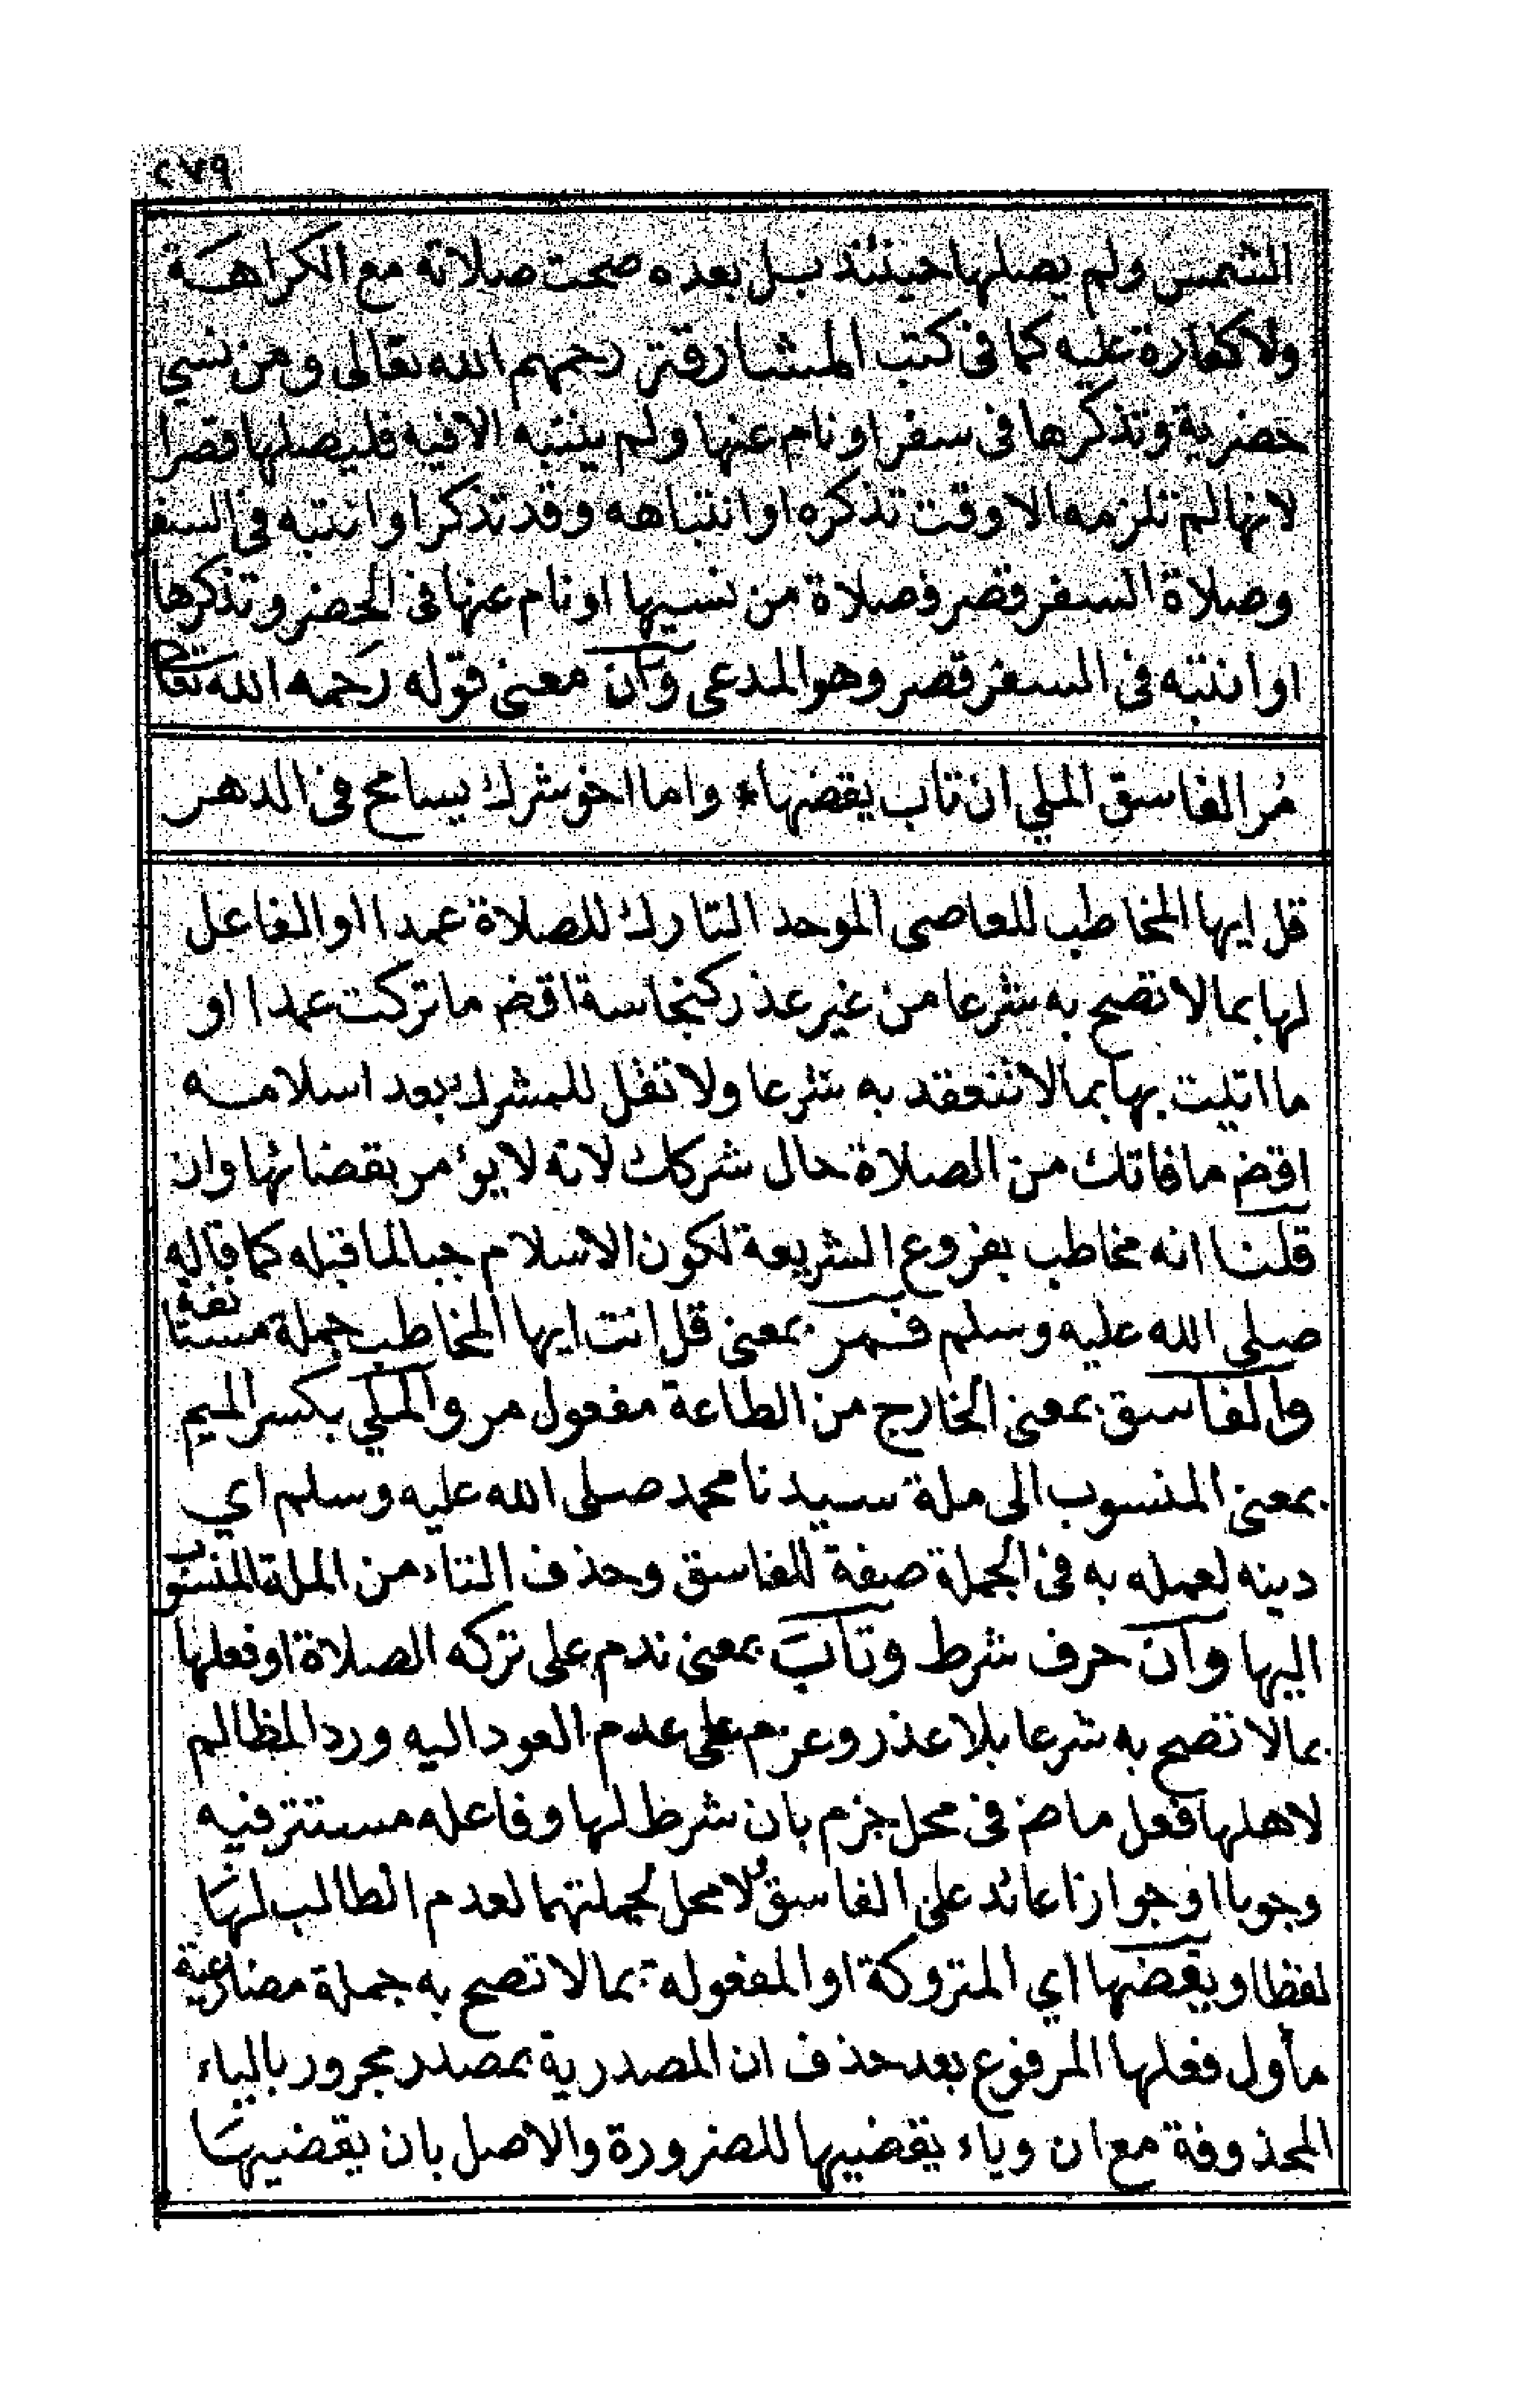 ٢٧٩
الشمس ولم يصلها حينئذ بل بعده صحت صلاته مع الكراهة
ولا كفارة عليه كما في كتب المشارقة رحمهم الله تعالى ومن نسي
حضرية وتذكرها في سفر او نام عنها ولم ينتبه الا فيه فليصلها قصرا
لانها لم تلزمه الا وقت تذكره او انتباهه وقد تذكر او انتبه في السفر
وصلاة السفر قصر فصلاة من نسيها او نام عنها في الحضر وتذكرها
او انتبه في السفر قصر وهو المدعى وان معنى قوله رحمه الله تعالى
مُر الفاسق الملي ان تاب يقضها * واما اخو شرك يسامح في الدهر
قل ايها المخاطب للعاصي الموحد التارك للصلاة عمدا او الفاعل
لها بما لا تصح به شرعا من غير عذر كنجاسة اقض ما تركت عمدا او
ما اتيت بها بما لا تنعقد به شرعا ولا تقل للمشرك بعد اسلامه
اقض ما فاتك من الصلاة حال شركك لانه لا يؤمر بقضائها وان
قلنا انه مخاطب بفروع الشريعة لكون الاسلام جبا لما قبله كما قاله
صلى الله عليه وسلم فمر بمعنى قل انت ايها المخاطب جملة مستأنفة
والفاسق بمعنى الخارج من الطاعة مفعول مر والملي بكسر الميم
بمعنى المنسوب الى ملة سيدنا محمد صلى الله عليه وسلم اي
دينه لعمله به في الجملة صفة للفاسق وحذف التاء من الملة المنسوب
اليها وان حرف شرط وتاب بمعنى ندم على تركه الصلاة او فعلها
بما لا تصح به شرعا بلا عذر وعزم على عدم العود اليه ورد المظالم
لاهلها فعل ماض في محل جزم بان شرط لها وفاعله مستتر فيه
وجوبا او جوازا عائد على الفاسق لا محل لجملتهما لعدم الطالب لها
لفظا ويقضها اي المتروكة او المفعولة بما لا تصح به جملة مضارعية
مأول فعلها المرفوع بعد حذف ان المصدرية بمصدر مجرور بالباء
المحذوفة مع ان وياء يقضيها للضرورة والاصل بان يقضيها